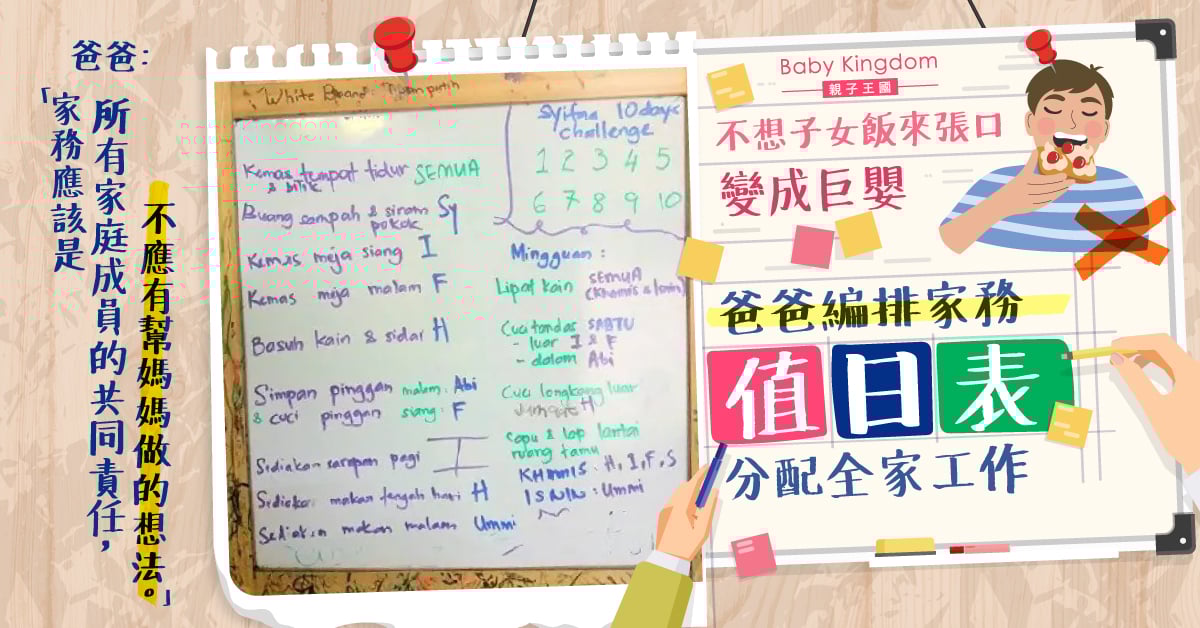 爸爸:
「家務應該是
所有家庭成員的共同責任,
不應有幫媽媽做的想法。」
White Board
Syifaa 10 days
challenge
1 2 3 4 5
6 7 8 9 10
Kemas tempat tidur SEMUA
& bilik
Buang sampah & siram Sy
pokok
Kemas meja siang I
Kemas meja malam F
Basuh kain & sidai H
Simpan pinggan malam: Abi
& cuci pinggan siang: F
Sediakan sarapan pagi I
Sediakan makan tengah hari H
Sediakan makan malam Ummi
Mingguan:
Lipat kain SEMUA
(Khamis & Isnin)
Cuci tandas SABTU
- luar I & F
- dalam Abi
Cuci longkang luar
Jumaat H
Sapu & lap lantai
ruang tamu
KHAMIS: H, I, F, S
ISNIN: Ummi
Baby Kingdom
親子王國
不想子女飯來張口
變成巨嬰
爸爸編排家務
值日表
分配全家工作